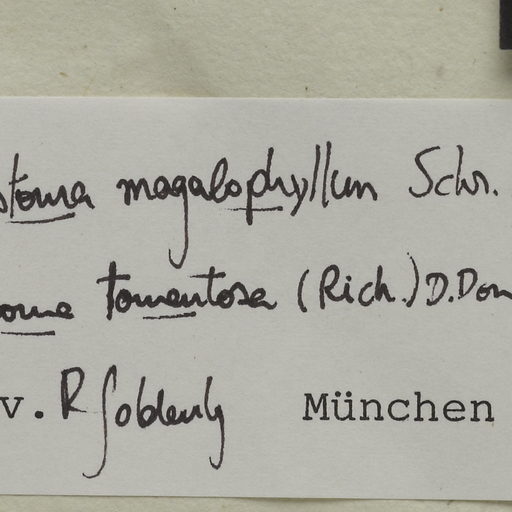 stoma magalophyllum Schr.
oma tomentosa (Rich.) D.Don
v. R Goldenberg München